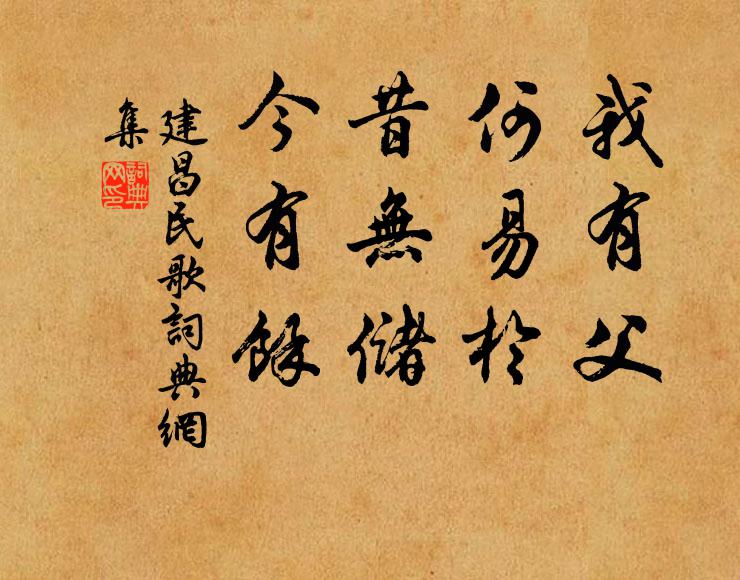 我有父
何易於
昔無儲
今有餘
建昌民歌詞典網
集
詞典
网印